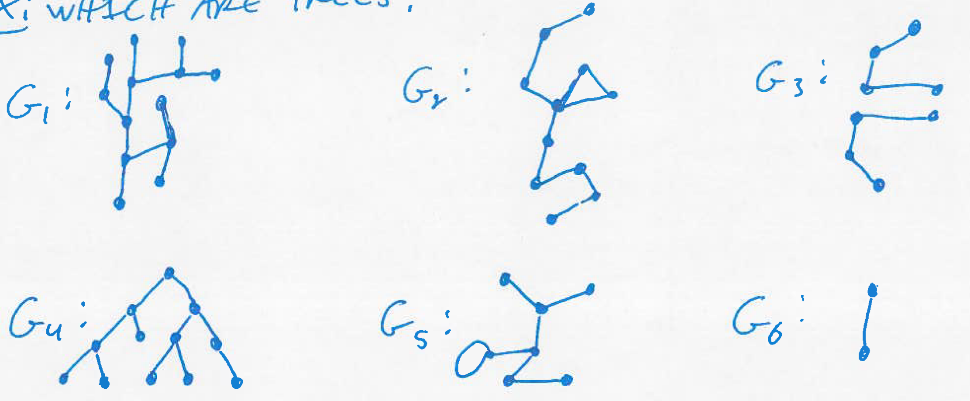 x: WHICH ARE TREES.
G1: G2: G3:
G4: G5: G6: